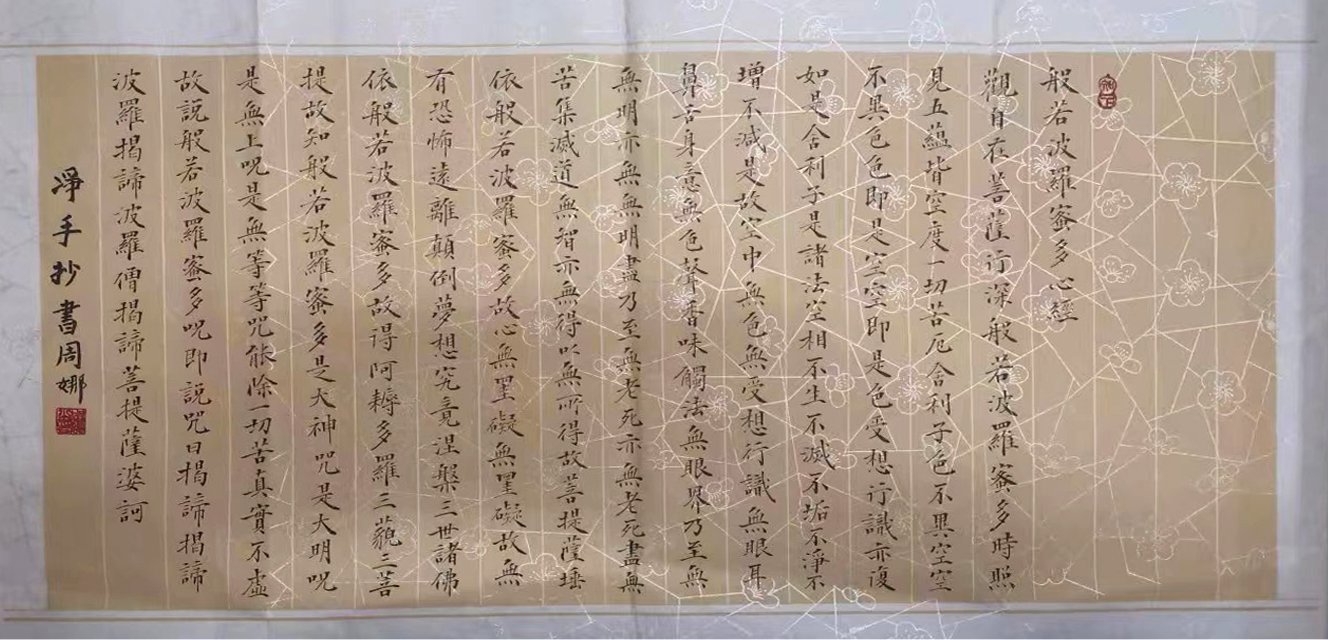 般若波羅蜜多心經
觀自在菩薩行深般若波羅蜜多時照
見五蘊皆空度一切苦厄舍利子色不異空空
不異色色即是空空即是色受想行識亦復
如是舍利子是諸法空相不生不滅不垢不淨不
增不減是故空中無色無受想行識無眼耳
鼻舌身意無色聲香味觸法無眼界乃至無
無明亦無無明盡乃至無老死亦無老死盡無
苦集滅道無智亦無得以無所得故菩提薩埵
依般若波羅蜜多故心無罣礙無罣礙故無
有恐怖遠離顛倒夢想究竟涅槃三世諸佛
依般若波羅蜜多故得阿耨多羅三藐三菩
提故知般若波羅蜜多是大神咒是大明呪
是無上呪是無等等咒能除一切苦真實不虛
故説般若波羅蜜多呪即説咒曰揭諦揭諦
波羅揭諦波羅僧揭諦菩提薩婆訶
淨手抄書周娜